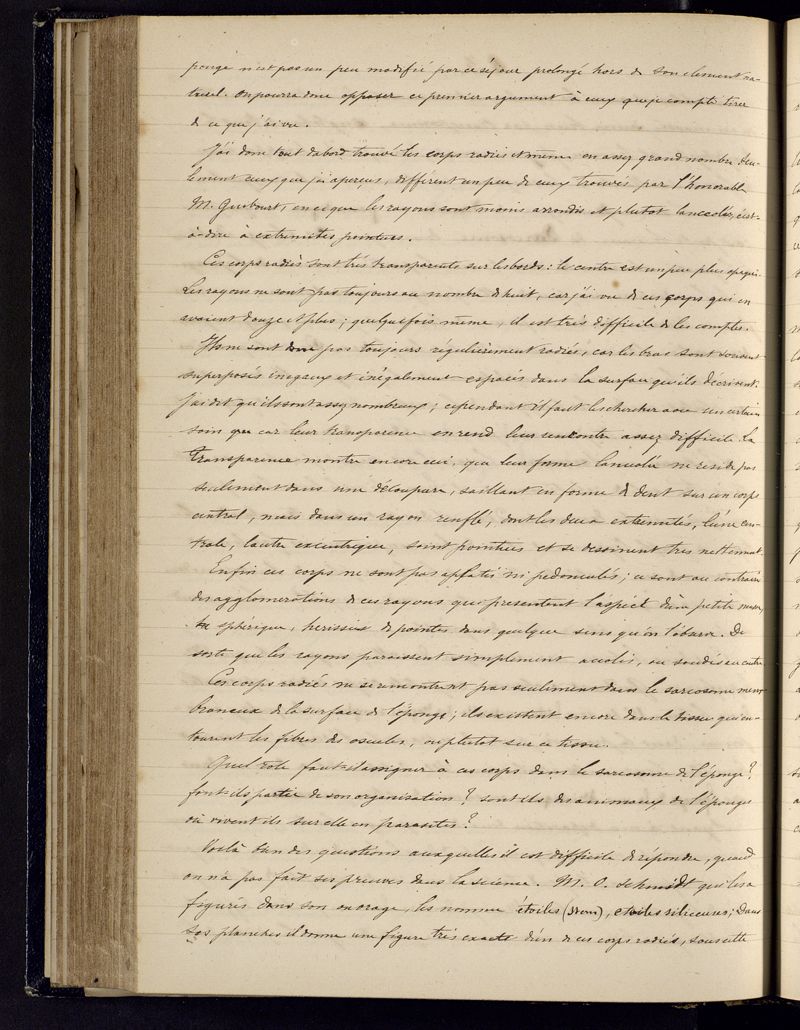 ponge n'est pas un peu modifié par ce séjour prolongé hors de son element na-
turel. on pourra donc opposer ce premier argument à ceux que je compte tirer
de ce que j'ai vu.
J'ai donc tout dabord trouvé les corps radiés et même en assez grand nombre seu-
lement ceux que j'ai aperçus, different un peu de ceux trouvés par l'honorable
M. Guibourt, en ce que les rayons sont moins arrondis et plutot lancéolés, c'est-
à-dire à extremités pointues.
Ces corps radiés sont très transparents sur les bords: le centre est un peu plus opaque.
Les rayons ne sont pas toujours au nombre de huit, car j'ai vu de ces corps qui en
avaient douze et plus; quelquefois même, il est très difficile de les compter.
Ils ne sont donc pas toujours régulièrement radiés, car les bras sont souvent
superposés inegaux et inégalement espacés dans la surface qu'ils décrivent.
J'ai dit qu'ils sont assez nombreux; cependant il faut les chercher avec un certain
soin car leur transparence en rend leur rencontre assez difficile. La
transparence montre encore ceci, que leur forme lancéolée ne reside pas
seulement dans une découpure, saillant en forme de dent sur un corps
central, mais dans un rayon renflé, dont les deux extremités, l'une cen-
trale, l'autre excentrique, sont pointues et se dessinent très nettement.
Enfin ces corps ne sont pas aplatis ni pedonculés; ce sont au contraire
des agglomerations de ces rayons qui presentent l'aspect d'une petite masse,
sphérique, herissée de pointes dans quelque sens qu'on l'observe. De
sorte que les rayons paraissent simplement accolés, ou soudés au centre
Ces corps radiés ne se rencontrent pas seulement dans le sarcosome mem-
braneux de la surface de l'éponge; ils existent encore dans le tissu qui en-
tourent les fibres des oscules, ou plutot sur ce tissu.
Quel role faut-il assigner à ces corps dans le sarcosome de l'éponge?
font-ils partie de son organisation? sont ils des animaux de l'éponge
où vivent ils sur elle en parasites?
Voilà bien des questions auxquelles il est difficile de répondre, quand
on n'a pas fait ses preuves dans la science. M. O. Schmidt qui les a
figurés dans son ouvrage, les nomme étoiles (stern), etoiles siliceuses; Dans
ses planches il donne une figure très exacte d'un de ces corps radiés, sous cette